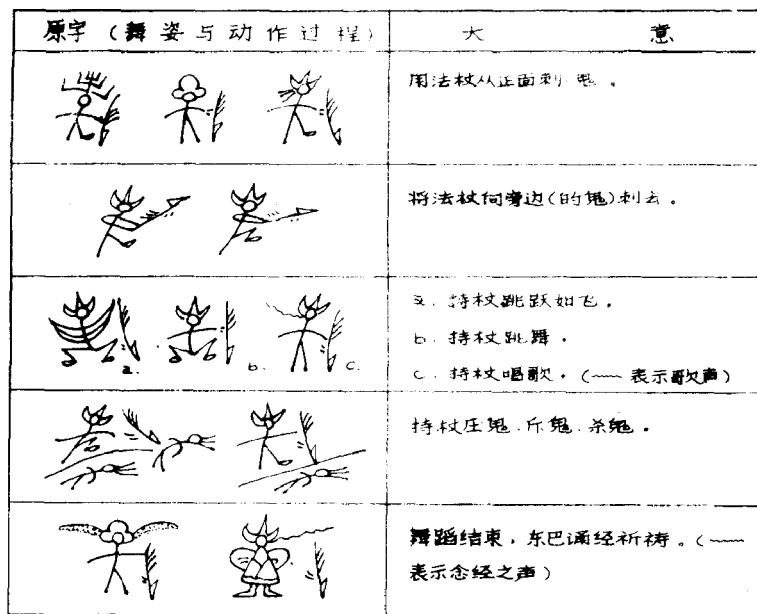 原字(舞姿与动作过程) 大意
用法杖从正面刺鬼。
将法杖向旁边(的鬼)刺去。
a. 持杖跳跃如飞。
b. 持杖跳舞。
c. 持杖唱歌。(﹏表示歌声)
a. b. c.
持杖压鬼.斥鬼.杀鬼。
舞蹈结束,东巴诵经祈祷。(﹏
表示念经之声)